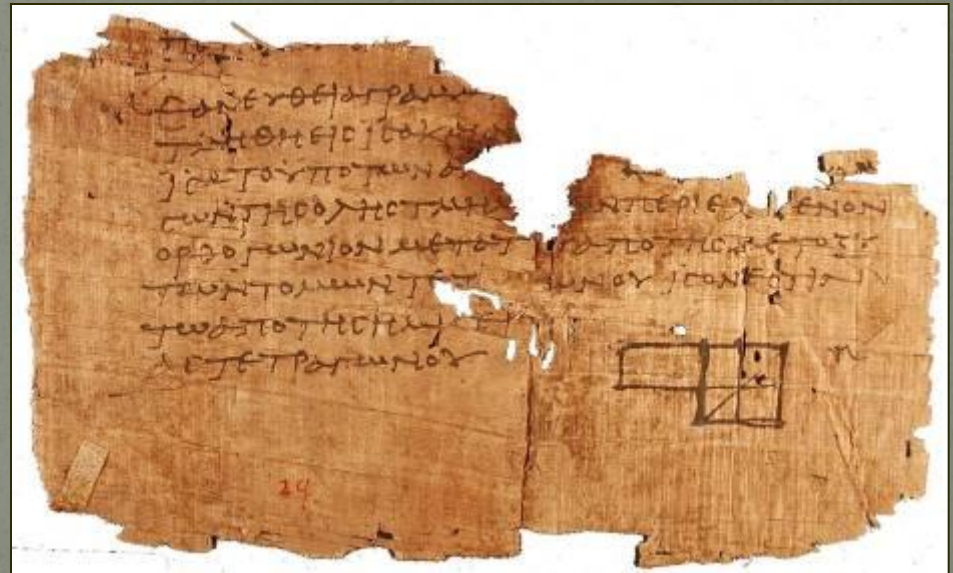 ΕΑΝΕΥΘΕΙΑΓΡΑΜΜ
ΤΜΗΘΗΕΙϹΙϹΑΚΑΙΑΝ
ΙϹΑΤΟΥΠΟΤΩΝΑ
ϹΩΝΤΗϹΟΛΗϹΤΜΗΜ ΩΝΠΕΡΙΕΧ ΜΕΝΟΝ
ΟΡΘΟΓΩΝΙΟΝΜΕΤΑΤ ΑΠΟΤΗϹΜΕΤΟΞΥ
ΤΩΝΤΟΜΩΝΤΕΤ ΩΝΟΥΙϹΟΝΕϹΤΙΝ
ΤΩΑΠΟΤΗϹΗΜΙϹΕΙ
ΑϹΤΕΤΡΑΓΩΝΟΥ
29